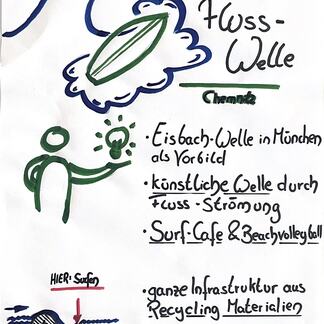 Fluss-
Welle
Chemnitz
· Eisbach-Welle in München
als Vorbild
· künstliche Welle durch
Fluss-Strömung
· Surf-Cafe & Beachvolleyball
HIER: Surfen
· ganze Infrastruktur aus
Recycling Materialien